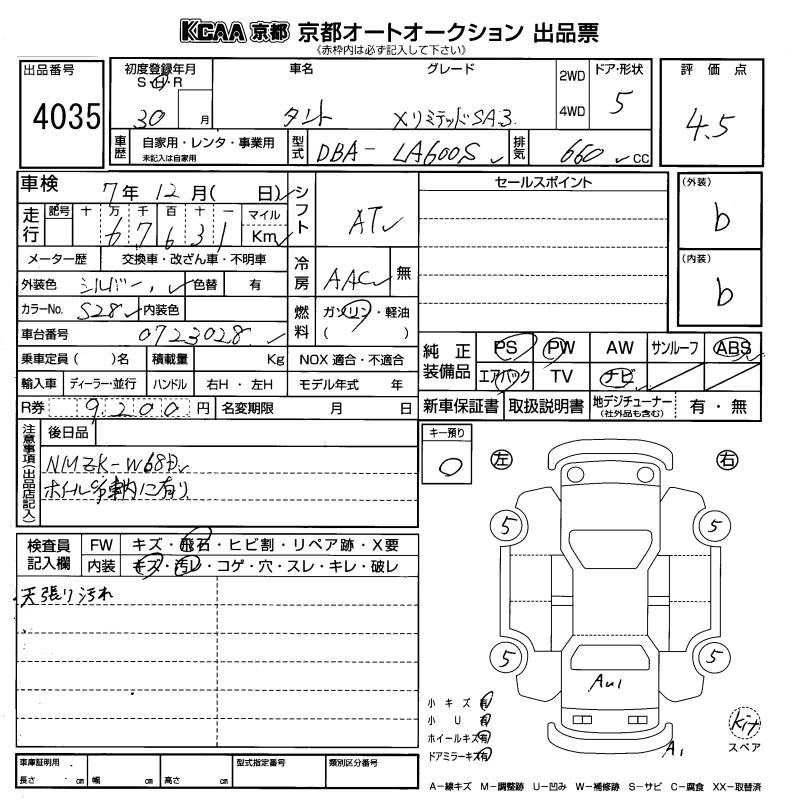 KCAA 京都 京都オートオークション 出品票
《赤枠内は必ず記入して下さい》
出品番号
4035
初度登録年月
S・H・R
30 月
車名
タント
グレード
XリミテッドSA3
2WD
4WD
ドア・形状
5
評価点
4.5
車歴
自家用・レンタ・事業用
未記入は自家用
型式
DBA- LA600S
排気
660 CC
車検
7年 12月( 日)
シフト
AT
走行
記号 十 万 千 百 十 一
6 7 6 3 1
マイル
Km
メーター歴 交換車・改ざん車・不明車
冷房
AAC 無
外装色 シルバー 色替 有
カラーNo. S28 内装色
燃料
ガソリン・軽油
( )
車台番号 0723028
乗車定員( )名 積載量 Kg NOX 適合・不適合
輸入車 ディーラー・並行 ハンドル 右H・左H モデル年式 年
R券 9,200 円 名変期限 月 日
セールスポイント
(外装)
b
(内装)
b
純正装備品
PS PW AW サンルーフ ABS
エアバック TV ナビ
新車保証書 取扱説明書 地デジチューナー
(社外品も含む)
有・無
注意事項(出品店記入)
後日品
NMZK-W68D
ホイール4本車内に有り
キー預り
○
左 右
5 5
5 5
AU1
A1
小キズ 有
小U 有
ホイールキズ 有
ドアミラーキズ 有
kit
スペア
検査員記入欄
FW キズ・飛石・ヒビ割・リペア跡・X要
内装 キズ・汚レ・コゲ・穴・スレ・キレ・破レ
天張り汚れ
車庫証明用
長さ cm 幅 cm 高さ cm
型式指定番号
類別区分番号
A-線キズ M-調整跡 U-凹み W-補修跡 S-サビ C-腐食 XX-取替済